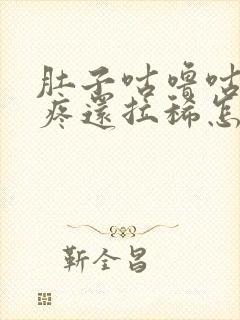 肚子咕噜咕
疼還拉稀怎
靳全昌